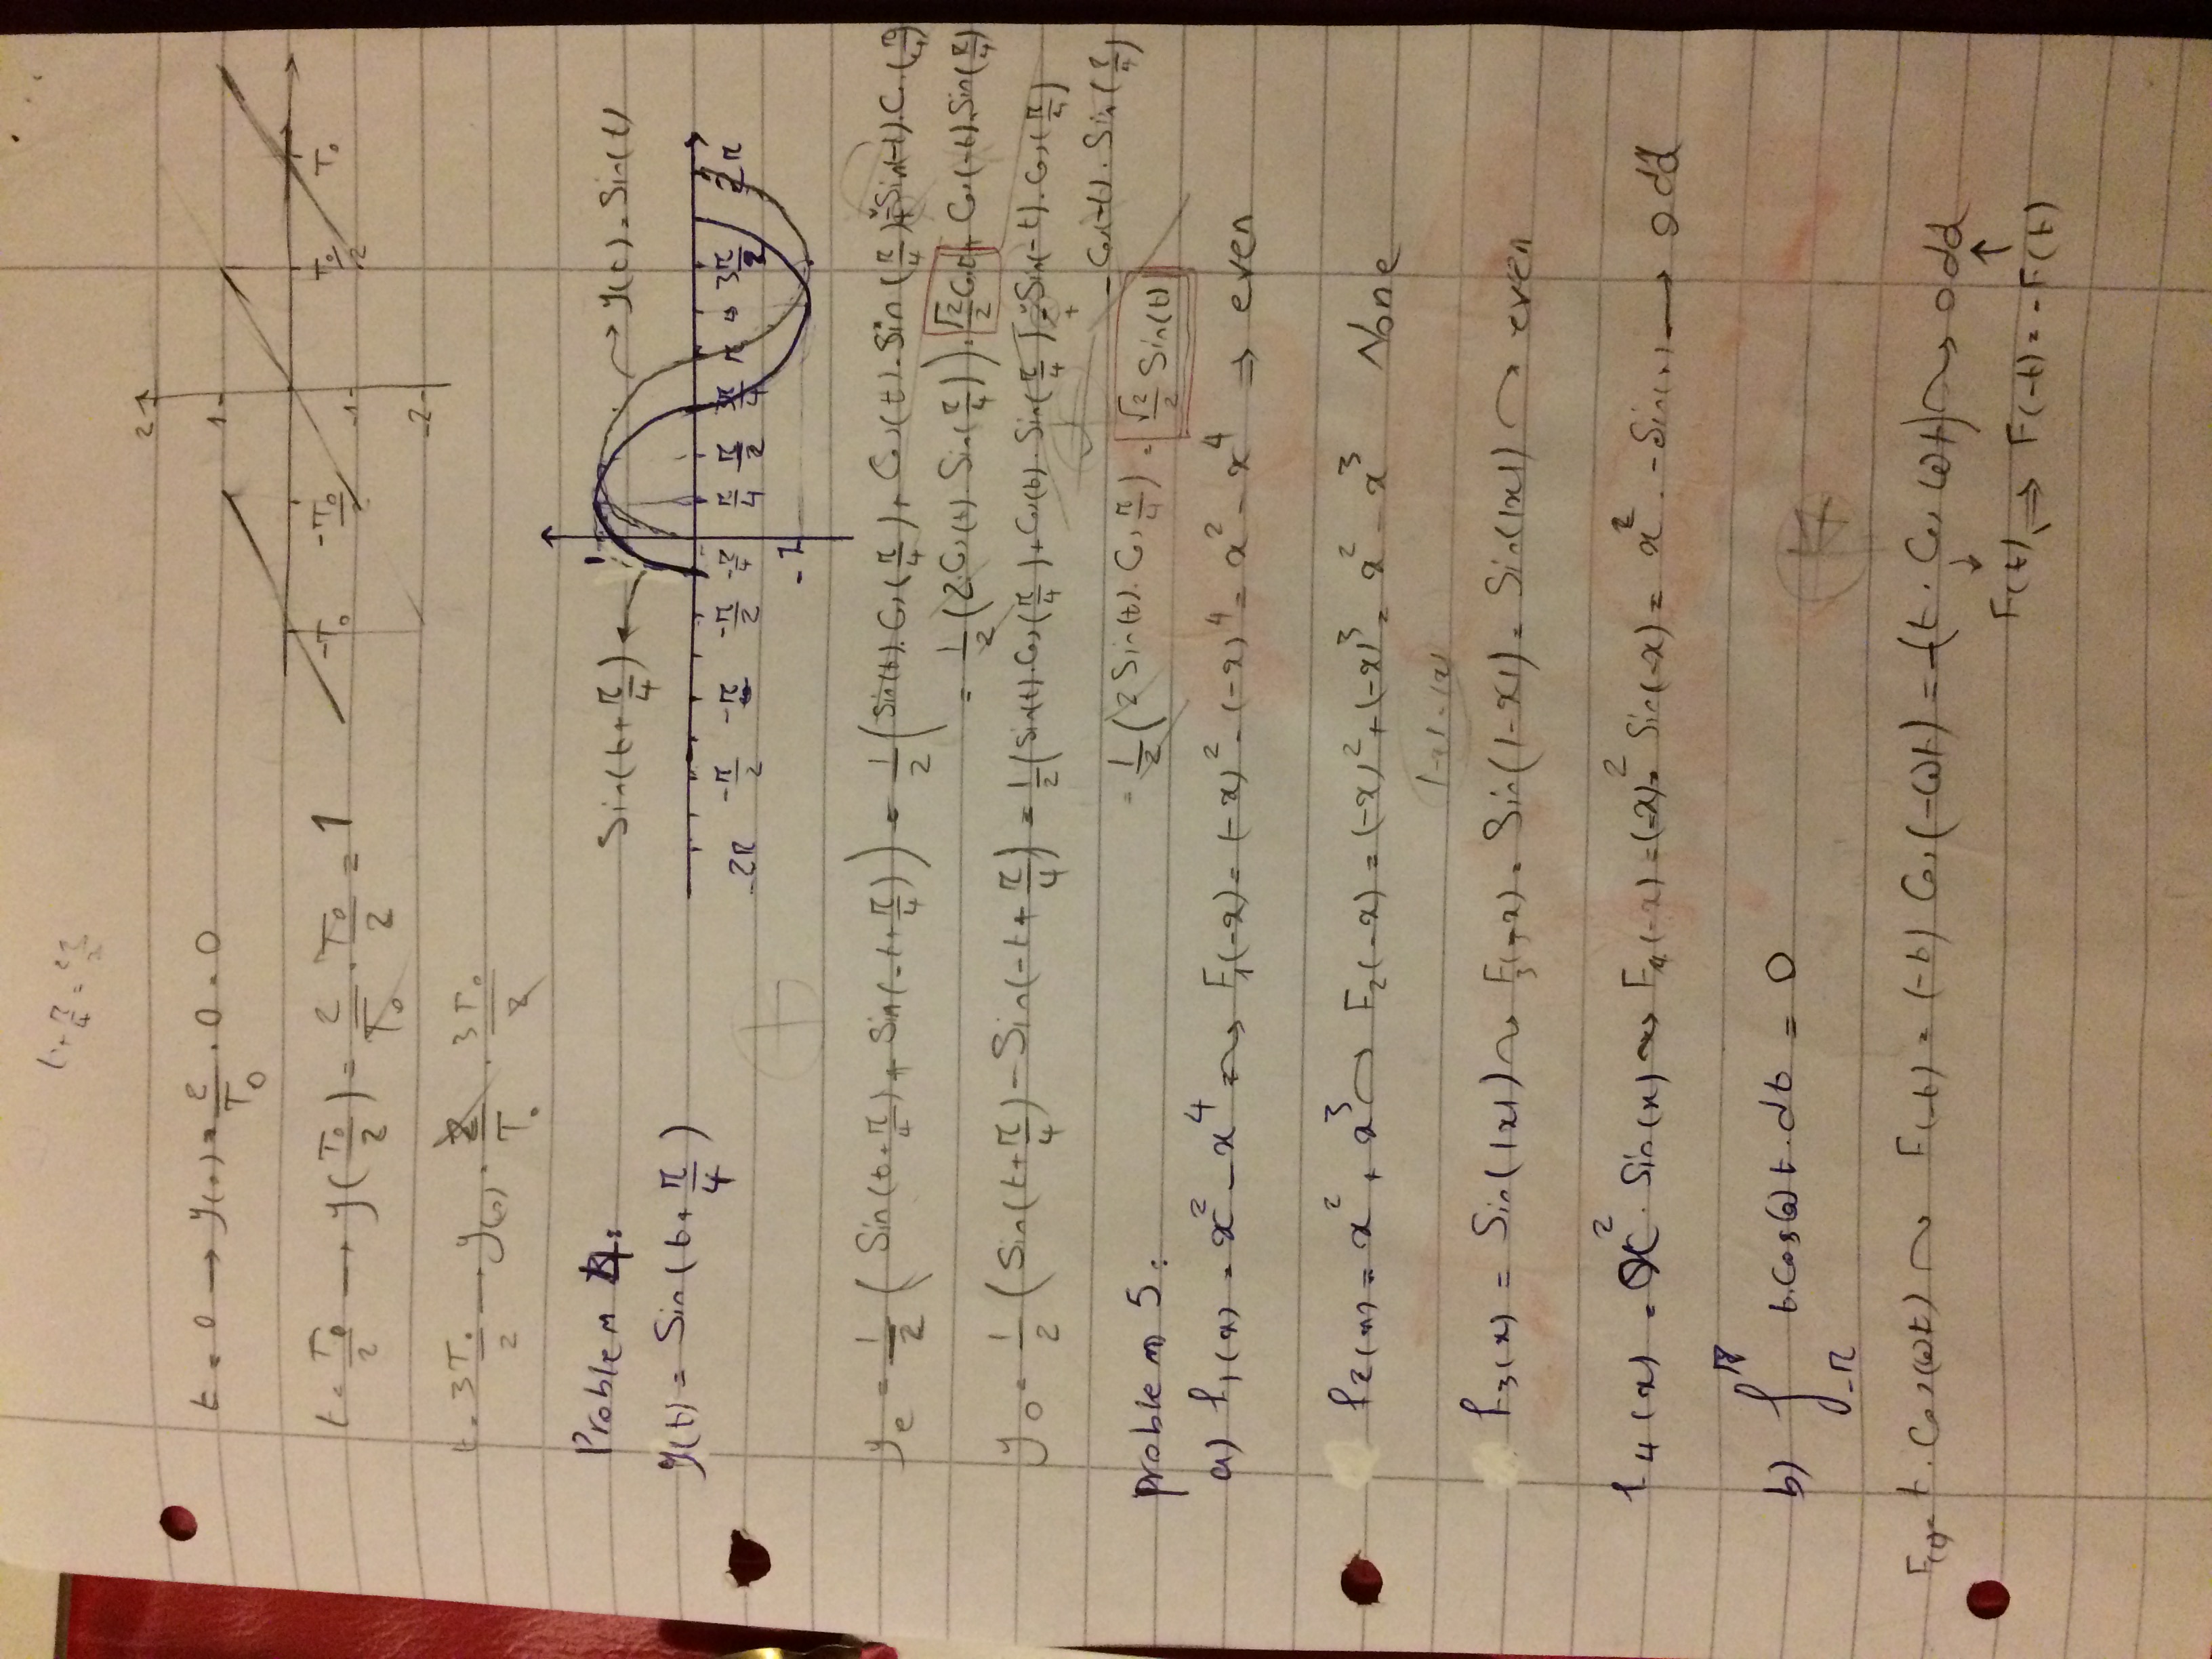 t + π/4 =
t = 0 → y(0) = 2/T0 · 0 = 0
2
1
-T0 -T0/2 T0/2 T0
-1
-2
t = T0/2 → y(T0/2) = 2/T0 · T0/2 = 1
t = 3T0/2 → y(0) = 2/T0 · 3T0/2
Problem 4:
Sin(t+π/4) ← 1 → y(t) = Sin(t)
y(t) = Sin(t + π/4)
-2π -π/2 -π -π/2 -π/4 π/4 π/2 3π/4 π 3π/2 2π
-1
ye = 1/2 ( Sin(t+π/4) + Sin(-t+π/4) ) = 1/2 ( Sin(t). Cos(π/4) + Cos(t). Sin(π/4) + Sin(-t). Cos(π/4)
= 1/2 (2. Cos(t) Sin(π/4)) = √2/2 Cos t + Cos(-t). Sin(π/4)
yo = 1/2 ( Sin(t+π/4) - Sin(-t+π/4) ) = 1/2 ( Sin(t). Cos(π/4) + Cos(t). Sin(π/4) - Sin(-t). Cos(π/4)
+
- Cos(-t). Sin(π/4)
= 1/2 (2 Sin(t). Cos π/4) = √2/2 Sin(t)
problem 5:
a) f1(x) = x² - x⁴ ⇝ F1(-x) = (-x)² - (-x)⁴ = x² - x⁴ ⇒ even
f2(x) = x² + x³ ⇝ F2(-x) = (-x)² + (-x)³ = x² - x³ None
|-x| = |x|
f3(x) = Sin(|x|) ⇝ F3(-x) = Sin(|-x|) = Sin(|x|) ⇝ even
f4(x) = x² · Sin(x) ⇝ F4(-x) = (-x)² · Sin(-x) = x² · -Sin(x) → odd
b) ∫_{-π}^{π} t. Cos ω t . dt = 0
F(t) = t · Cos(ωt) ⇝ F(-t) = (-t) Cos(-ωt) = -(t · Cos ωt) ⇝ odd
↓ ↑
F(t) ⇒ F(-t) = -F(t)